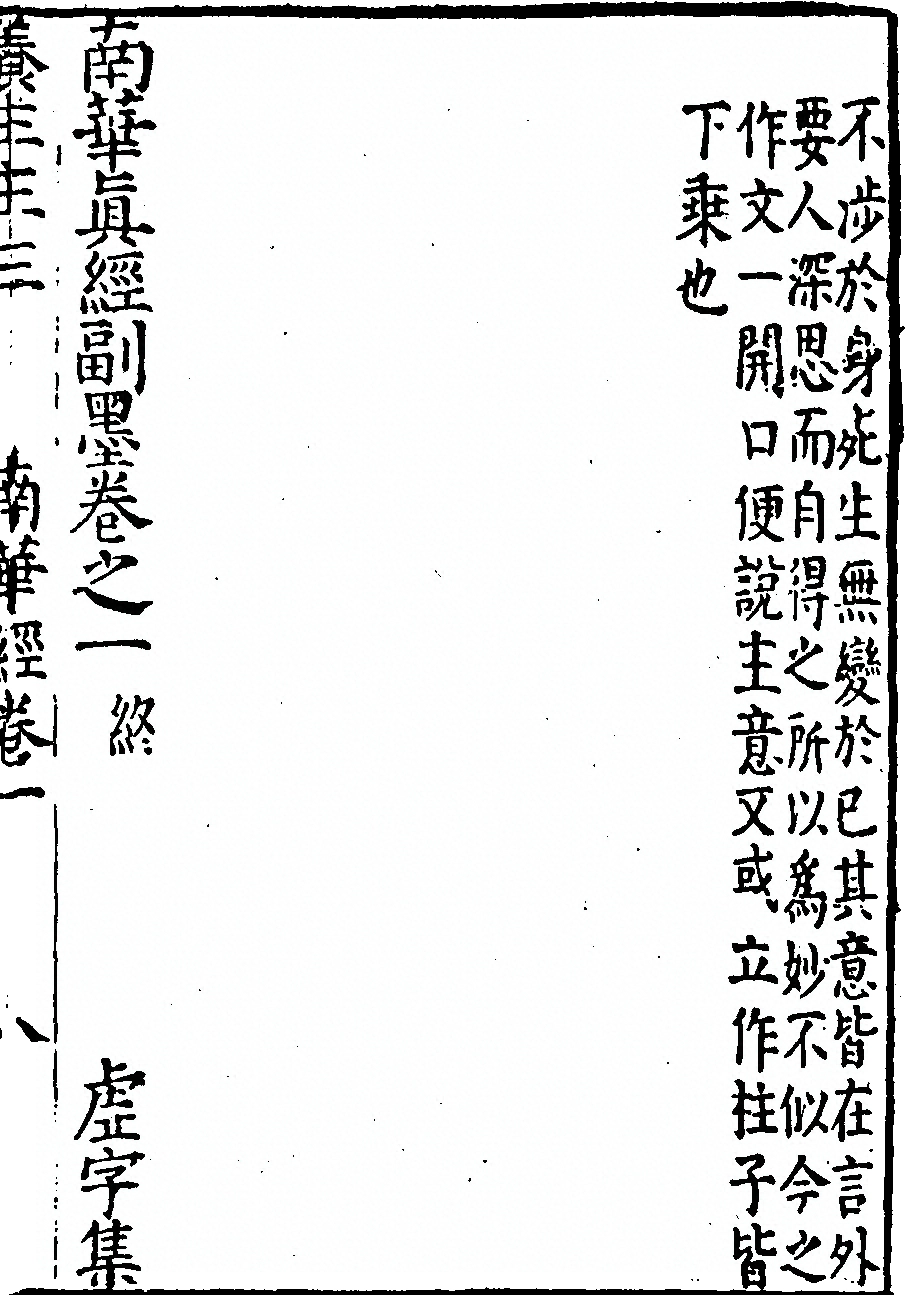 不涉於身死生無變於已其意皆在言外
要人深思而自得之所以爲妙不似今之
作文一開口便說主意又或立作柱子皆
下乗也
南華眞經副墨卷之一 終 虛字集
養生主三 南華經卷一 八